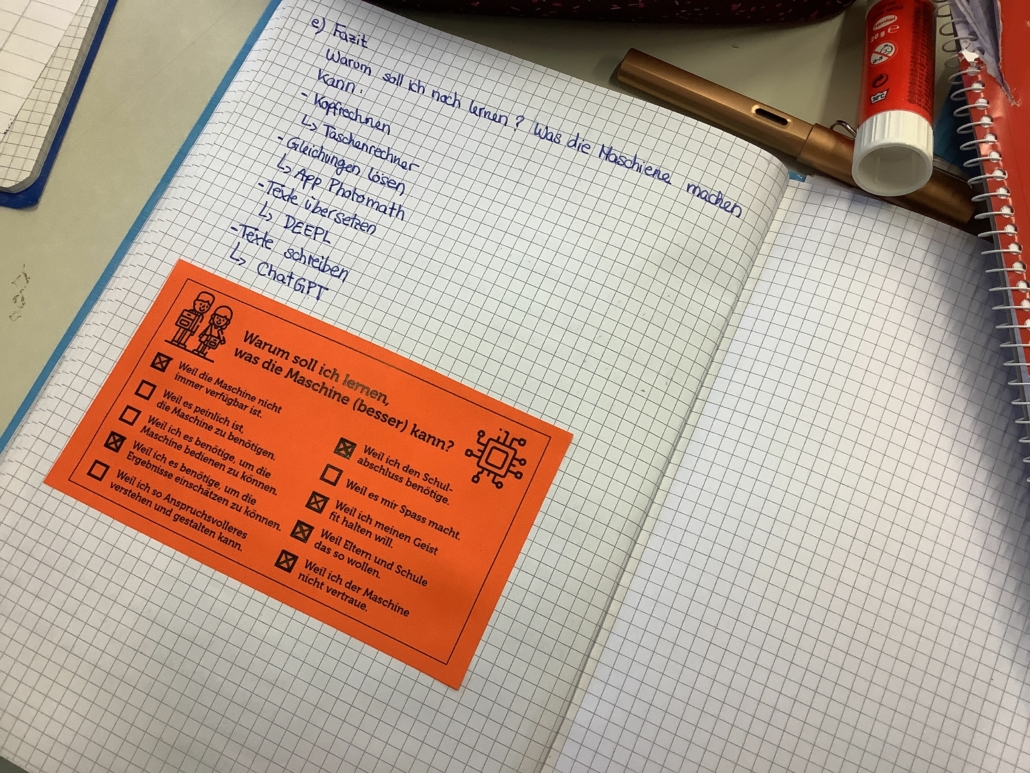 e) Fazit
Warum soll ich noch lernen? Was die Maschiene machen
kann.
- Kopfrechnen
↳ Taschenrechner
- Gleichungen lösen
↳ App Photomath
- Texte übersetzen
↳ DEEPL
- Texte schreiben
↳ ChatGPT
Warum soll ich lernen,
was die Maschine (besser) kann?
☒ Weil die Maschine nicht
immer verfügbar ist.
☐ Weil es peinlich ist,
die Maschine zu benötigen.
☐ Weil ich es benötige, um die
Maschine bedienen zu können.
☒ Weil ich es benötige, um die
Ergebnisse einschätzen zu können.
☐ Weil ich so Anspruchsvolleres
verstehen und gestalten kann.
☒ Weil ich den Schul-
abschluss benötige.
☐ Weil es mir Spass macht.
☒ Weil ich meinen Geist
fit halten will.
☒ Weil Eltern und Schule
das so wollen.
☒ Weil ich der Maschine
nicht vertraue.